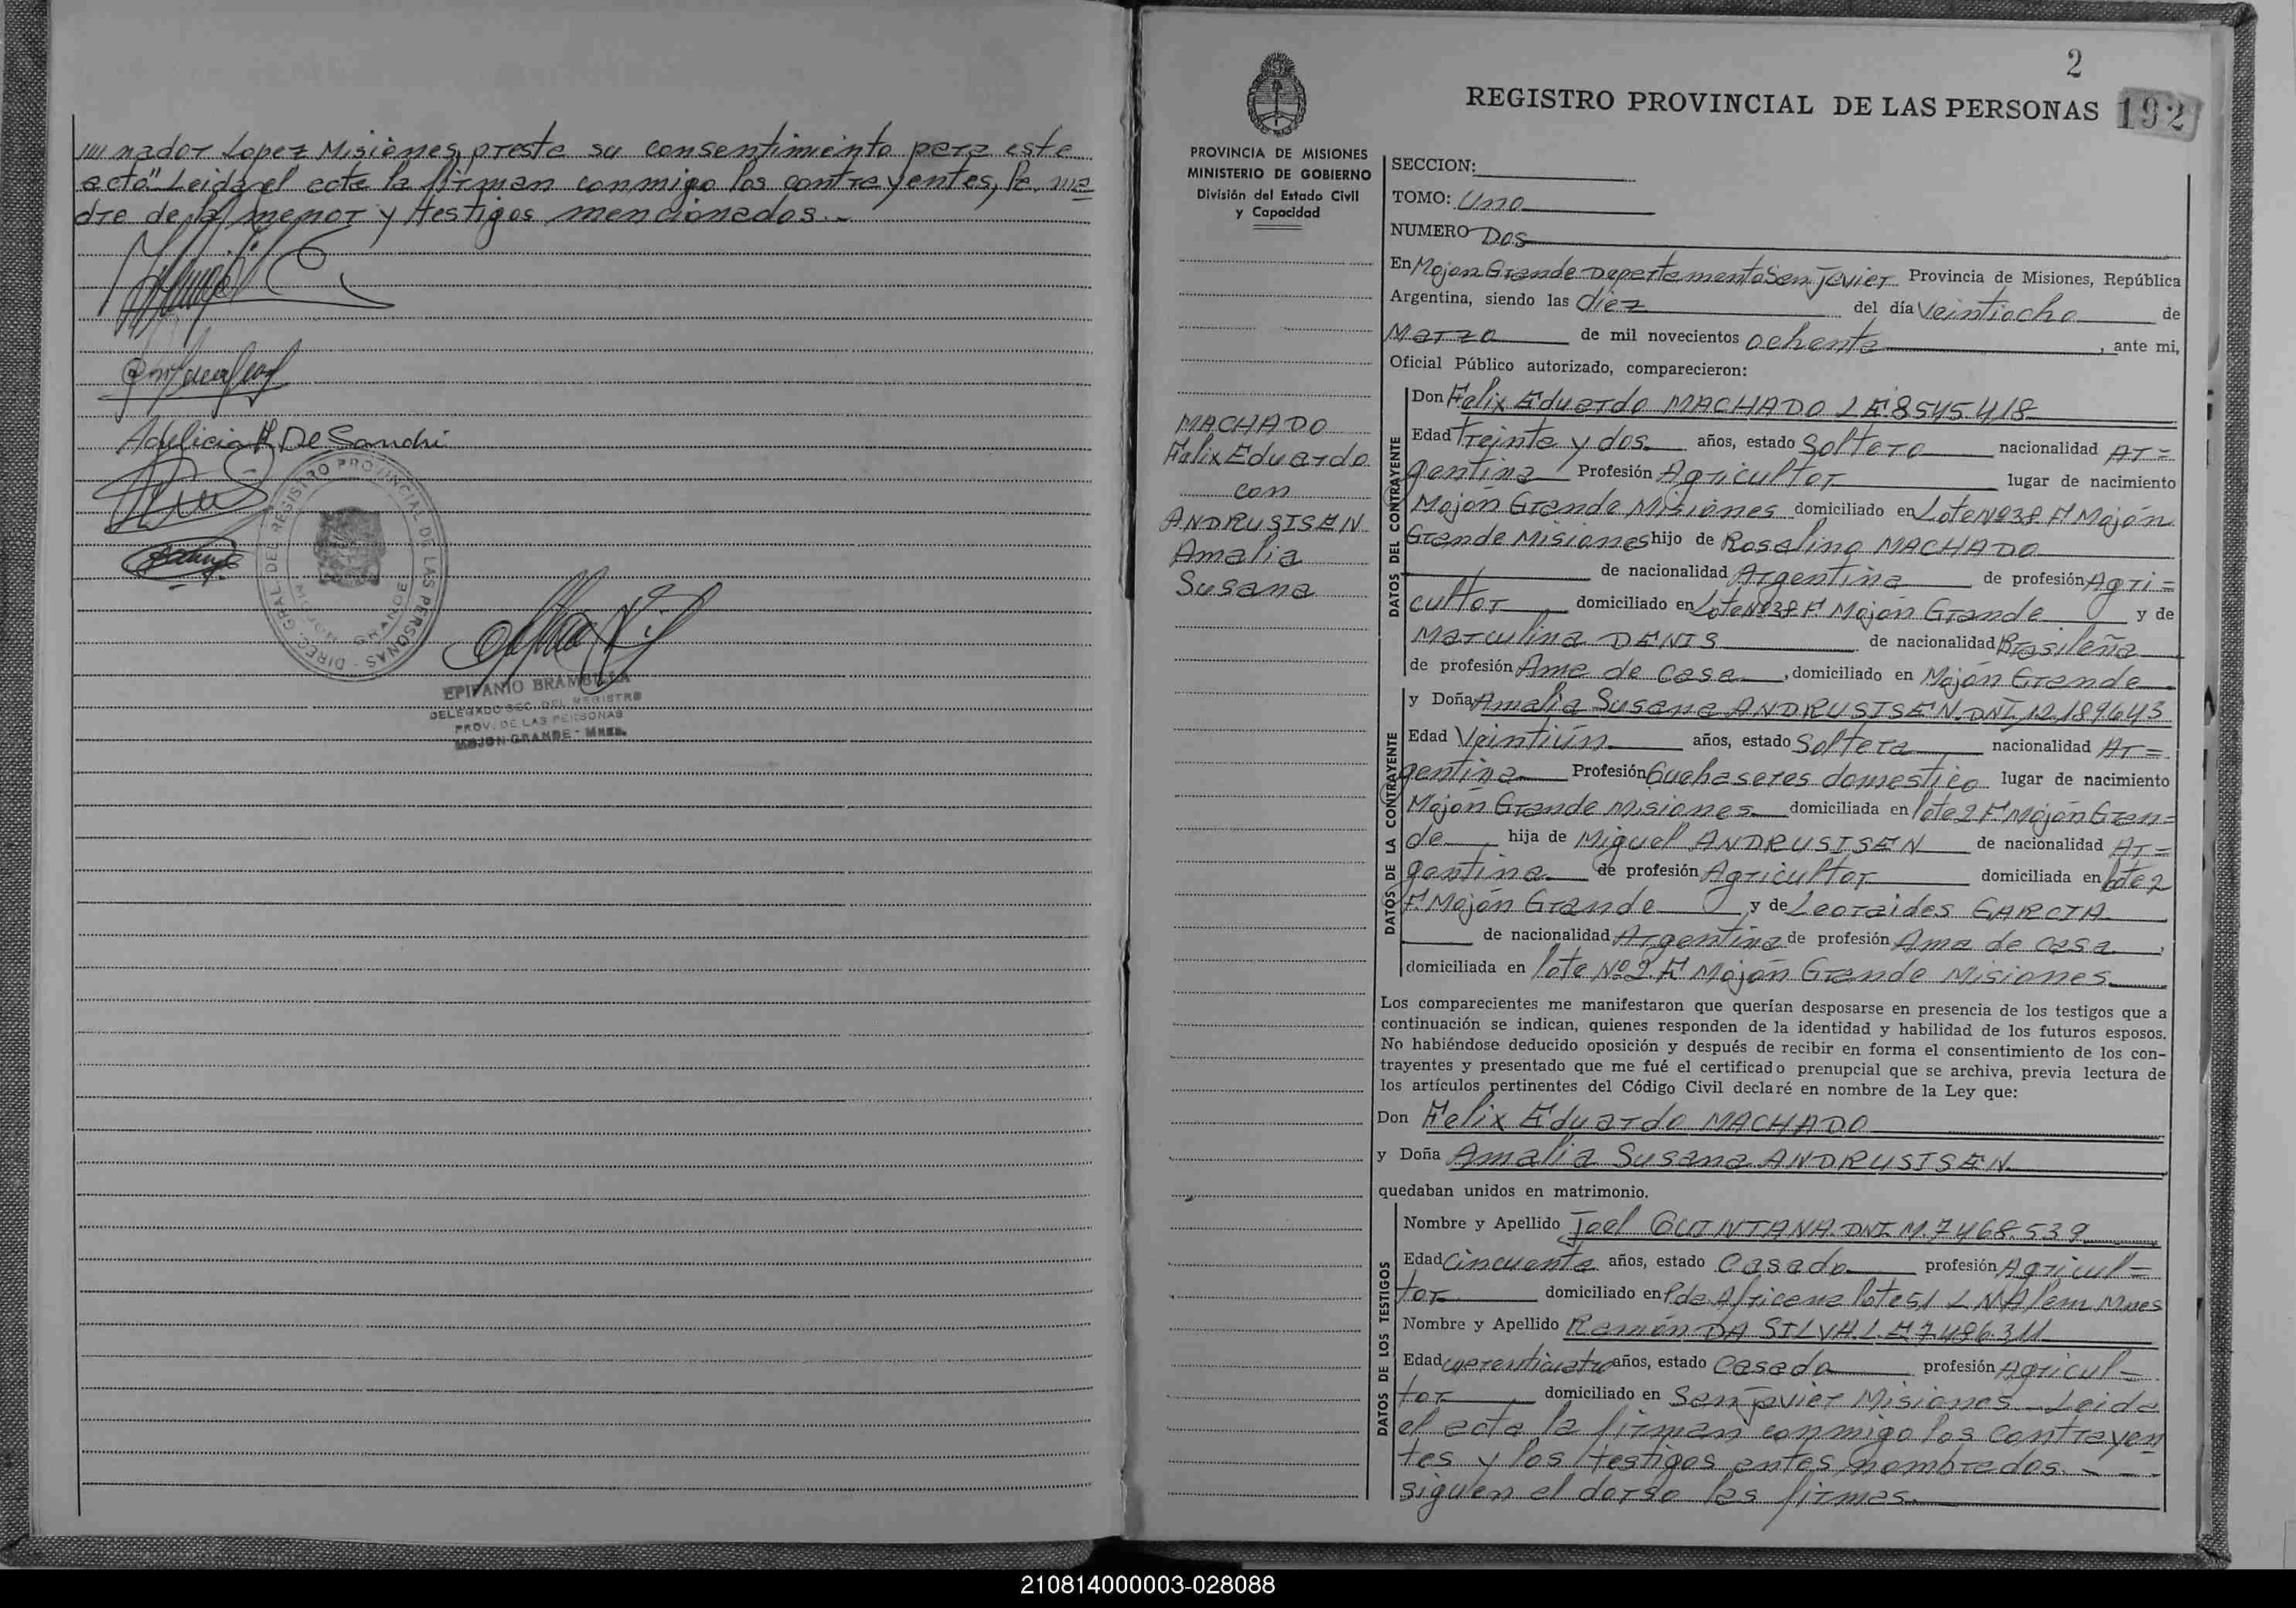 //// nador Lopez Misiones, preste su consentimiento para este
acto" Leida el acta la firman conmigo los contrayentes, la ma
dre de la menor y testigos mencionados.-
Adelicia H De Sanchi
DIREC. GRAL. DEL REGISTRO PROVINCIAL DE LAS PERSONAS -
MOJON GRANDE
EPIFANIO BRAMBILLA
DELEGADO SEC. DEL REGISTRO
PROV. DE LAS PERSONAS
MOJON GRANDE - MNES.
2
REGISTRO PROVINCIAL DE LAS PERSONAS 192
PROVINCIA DE MISIONES
MINISTERIO DE GOBIERNO
División del Estado Civil
y Capacidad
MACHADO
Felix Eduardo
con
ANDRUSISEN
Amalia
Susana
SECCION:
TOMO: Uno
NUMERO Dos
En Mojon Grande Departamento San Javier Provincia de Misiones, República
Argentina, siendo las diez del día veintiocho de
Marzo de mil novecientos ochenta, ante mi,
Oficial Público autorizado, comparecieron:
DATOS DEL CONTRAYENTE
Don Felix Eduardo MACHADO LE 8545418
Edad treinta y dos años, estado Soltero nacionalidad Ar=
gentina Profesión Agricultor lugar de nacimiento
Mojón Grande Misiones domiciliado en Lote Nº38 Fl Mojón
Grande Misiones hijo de Rosalino MACHADO
de nacionalidad Argentina de profesión Agri=
cultor domiciliado en Lote Nº38 Fl Mojón Grande y de
Marculina DENIS de nacionalidad Brasileña
de profesión Ama de casa, domiciliado en Mojón Grande
DATOS DE LA CONTRAYENTE
y Doña Amalia Susana ANDRUSISEN DNI 12.189643
Edad Veintiún años, estado Soltera nacionalidad Ar=
gentina Profesión Quehaseres domestico lugar de nacimiento
Mojón Grande Misiones domiciliada en lote 2 Fl Mojón Gran=
de hija de Miguel ANDRUSISEN de nacionalidad Ar=
gentina de profesión Agricultor domiciliada en lote 2
Fl Mojón Grande y de Leoraides GARCIA
de nacionalidad Argentina de profesión Ama de casa,
domiciliada en lote Nº 2 Fl Mojón Grande Misiones
Los comparecientes me manifestaron que querían desposarse en presencia de los testigos que a
continuación se indican, quienes responden de la identidad y habilidad de los futuros esposos.
No habiéndose deducido oposición y después de recibir en forma el consentimiento de los con-
trayentes y presentado que me fué el certificado prenupcial que se archiva, previa lectura de
los artículos pertinentes del Código Civil declaré en nombre de la Ley que:
Don Felix Eduardo MACHADO
y Doña Amalia Susana ANDRUSISEN
quedaban unidos en matrimonio.
DATOS DE LOS TESTIGOS
Nombre y Apellido Joel QUINTANA DNI M.7468.539
Edad Cincuenta años, estado Casado profesión Agricul=
tor domiciliado en Pda Africana lote 51 L N Alem Mnes
Nombre y Apellido Ramón DA SILVA L E 7496.311
Edad cuarenticuatro años, estado Casado profesión Agricul-
tor domiciliado en San Javier Misiones - Leida
el acta la firman conmigo los contrayen
tes y los testigos antes nombrados. - -
siguen el dorso las firmas
210814000003-028088